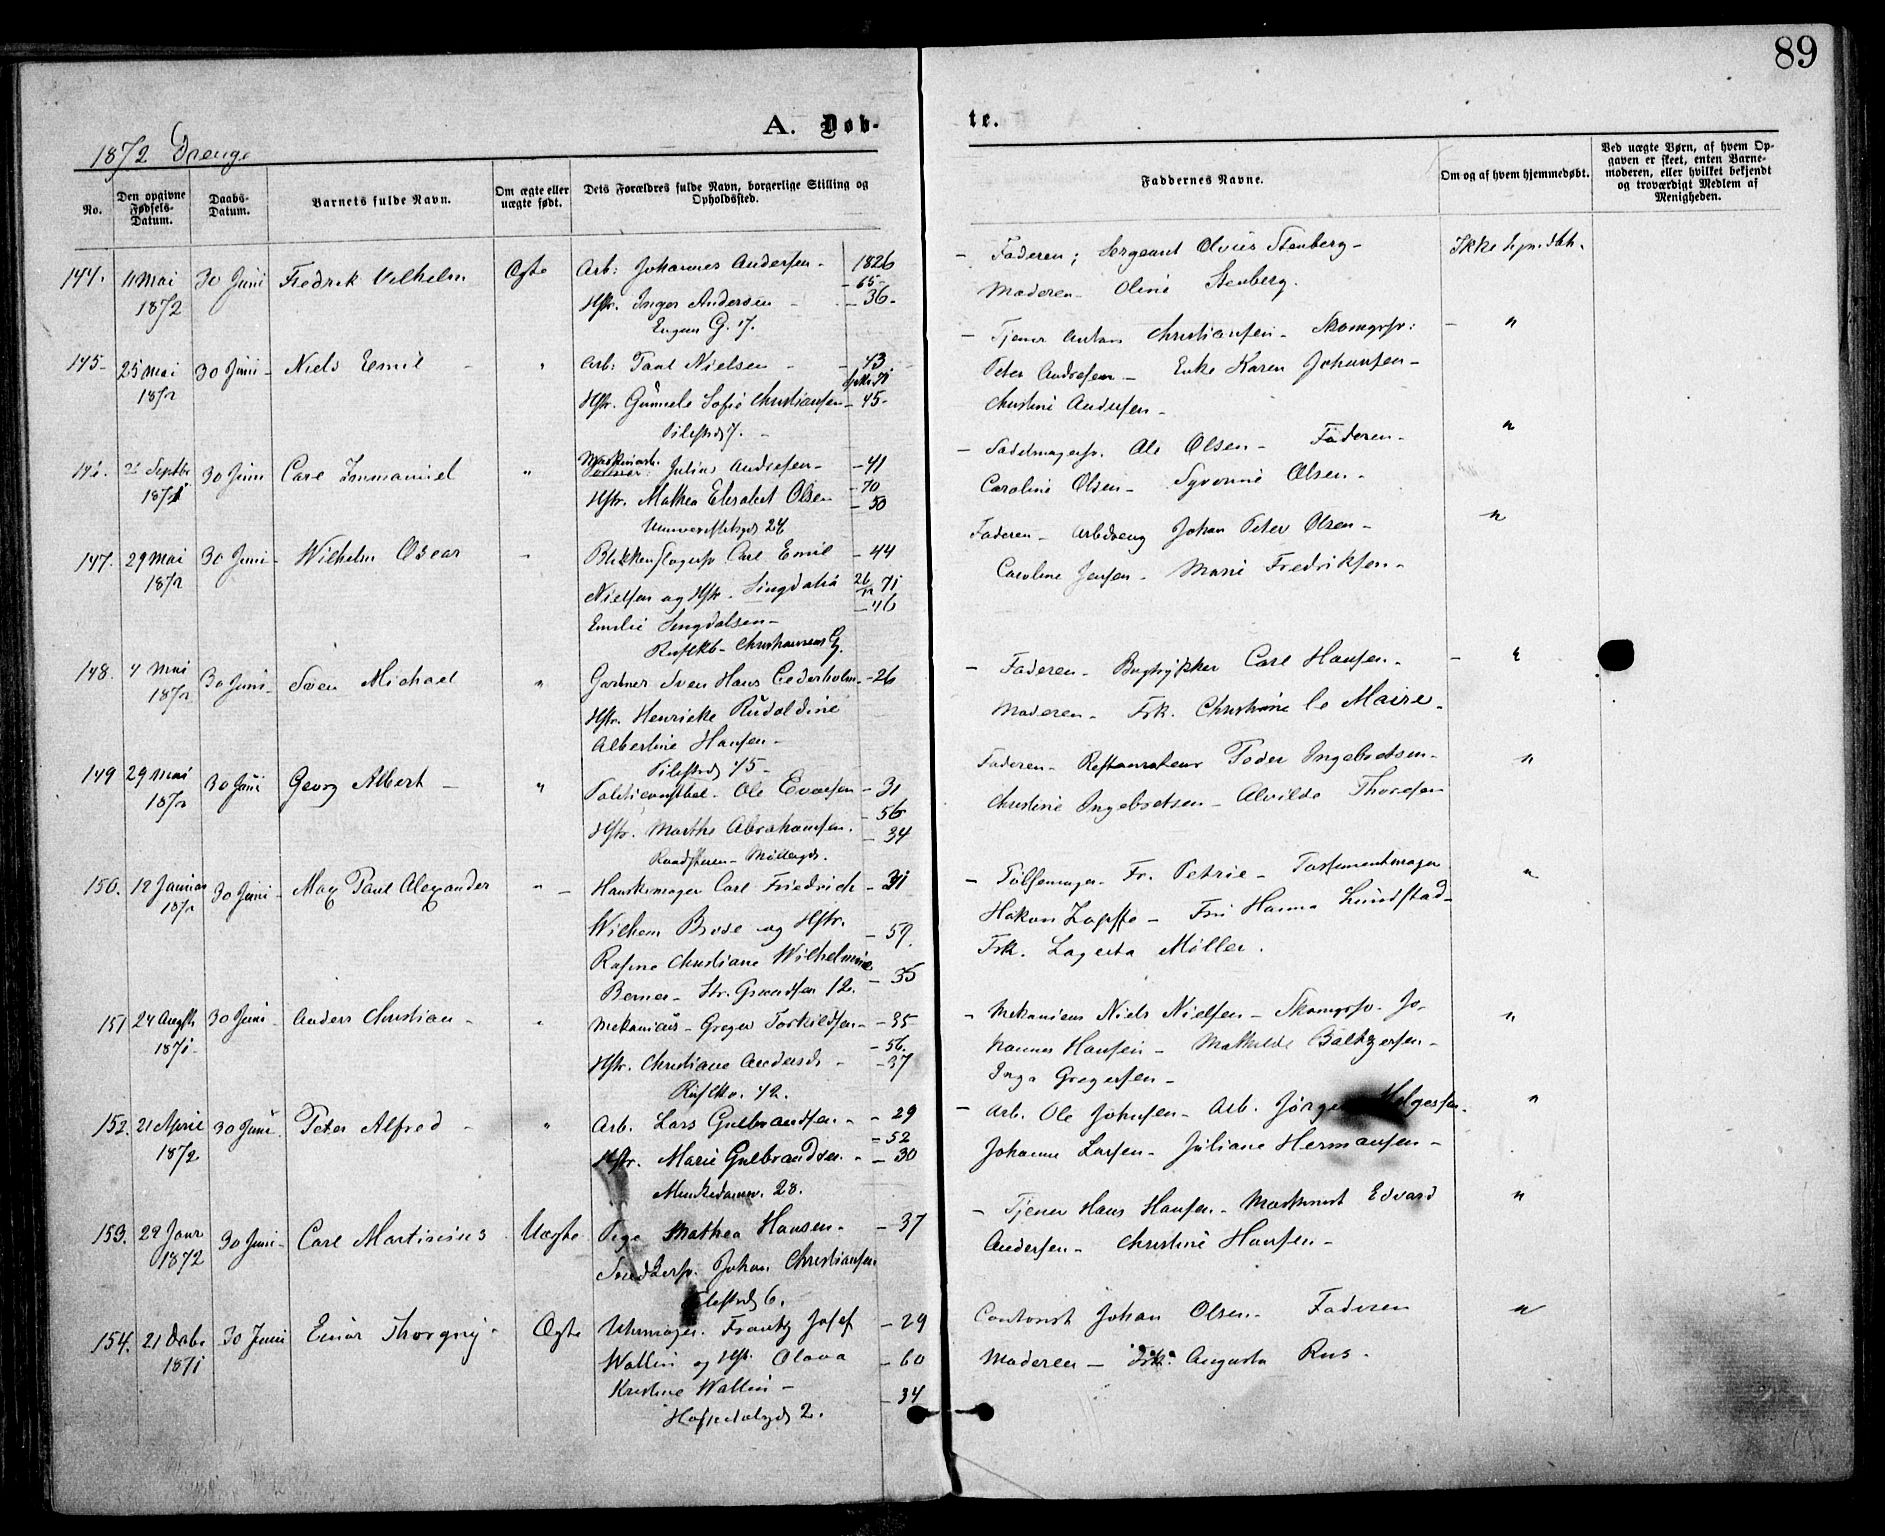 89
A. Døb-
te.
1872 Drenge
No.
Den opgivne Fødsels-Datum.
Daabs-Datum.
Barnets fulde Navn.
Om ægte eller uægte født.
Dets Forældres fulde Navn, borgerlige Stilling og Opholdssted.
Faddernes Navne.
Om og af hvem hjemmedøbt.
Ved uægte Børn, af hvem Opgaven er skeet, enten Barnemoderen, eller hvilket bekjendt og troværdigt Medlem af Menigheden.
144. 11 Mai 30 Juni Fredrik Vilhelm Ægte Arb: Johannes Andersen - 1826
- Faderen; Sergeant Olvus Stenberg - Ikke hjmdbt.
1872
- 65 -
Hstr. Inger Andersen - - 36 -
Moderen - Oline Stenberg.
G. 17.
- Tjener Anton Christiansen - Skomgsv: - "
145 - 25 Mai 30 Juni - Niels Emil - " Arb: Paul Nielsen - - 43
Peter Andresen - Enke Karen Johansen -
1872
Hstr. Gunnele Sofie Christiansen - 45 -
Christine Andersen -
Pilestrd 7. -
- Sadelmagersv. Ole Olsen - Faderen - "
146. Septbr 30 Juni Carl Immanuel " Julius Andresen - - 41
1871
- 70
Caroline Olsen - Olsen -
Hstr. Mathea Elisabet Olsen - 50
Universitetsgd 24
Faderen - Arbdreng Johan Peter Olsen - "
147. 29 Mai 30 Juni - Wilhelm Oscar - Blikkenslagersv Carl Emil - 44
1872
Caroline Jensen - Marie Fredriksen -
Nielsen og Hstr. 26 71
- 46
Emilie -
Rusløkb - Christiansens G.
148. 4 Mai 30 Juni - Sven Michael " Gartner Sven Hans Cederholm - - 26
- Faderen - Bogtrykker Carl Hansen - - "
1872
Hstr. Henrieke Rudoldine
Moderen - Frk. Christine le Maire -
Albertine Hansen -
Pilestrd 45 -
149 29 Mai 30 Juni Georg Albert - " Politiconstbel. Ole Evensen - 31
Faderen - Restaurateur Peder Ingebretsen - "
1872
- 56
Christine Ingebretsen - Alvilde Thoresen
Hstr. Marthe Abrahamsen. - 34
- Møllergd.
150. 12 Januar 30 Juni - Max Paul Alexander " - Hanskemager Carl Friedrich - 31
- Fr. Petrie - "
1872
Hakon Zapffe - Fru Hanna Lundstad -
Wilhem Bose og Hstr. - 59.
Frk. Lagerta Møller.
Rasine Christiane Wilhelmine
- 35
Berner - Str. Grændsen 12.
151 24 Augst 30 Juni - Anders Christian - " Mekanicus - Greger Torkildsen - - 35
- Mekanicus Niels Nielsen - Skomgsv. Jo- "
1871 -
- 56.
hannes Hansen - Mathilde Baltzersen -
Hstr. Christiane Andersd. - - 37
Inga Gregersen -
Rusløkv. 42.
152. 21 April 30 Juni. Peter Alfred - " Arb. Lars Gulbrandsen - - 29
- Arb. Ole Johnsen - Arb. Jørgen Holgersen. "
1872
- 52
Hstr. Marie Gulbrandsen - - 30
Johanne Larsen - Juliane Hermansen -
Munkedamsv. 28.
153. 29 Janr 30 Juni - Carl Martinius Uægte Pige Mathea Hansen - - 37
- Tjener Hans Hansen - Maskinist Edvard "
1872
Snedkersv. Johan Christiansen
Andersen - Christine Hansen -
Pilestrd 6.
154. 21 Debr 30 Juni Einar Thorgny - Ægte Uhrmager. Frantz Josef - 29
Contorist Johan Olsen - Faderen "
1871
Wallin og Hst. Olava - 60
Moderen - Frk. Augusta Rus -
Kristine Wallin - - 34
2.